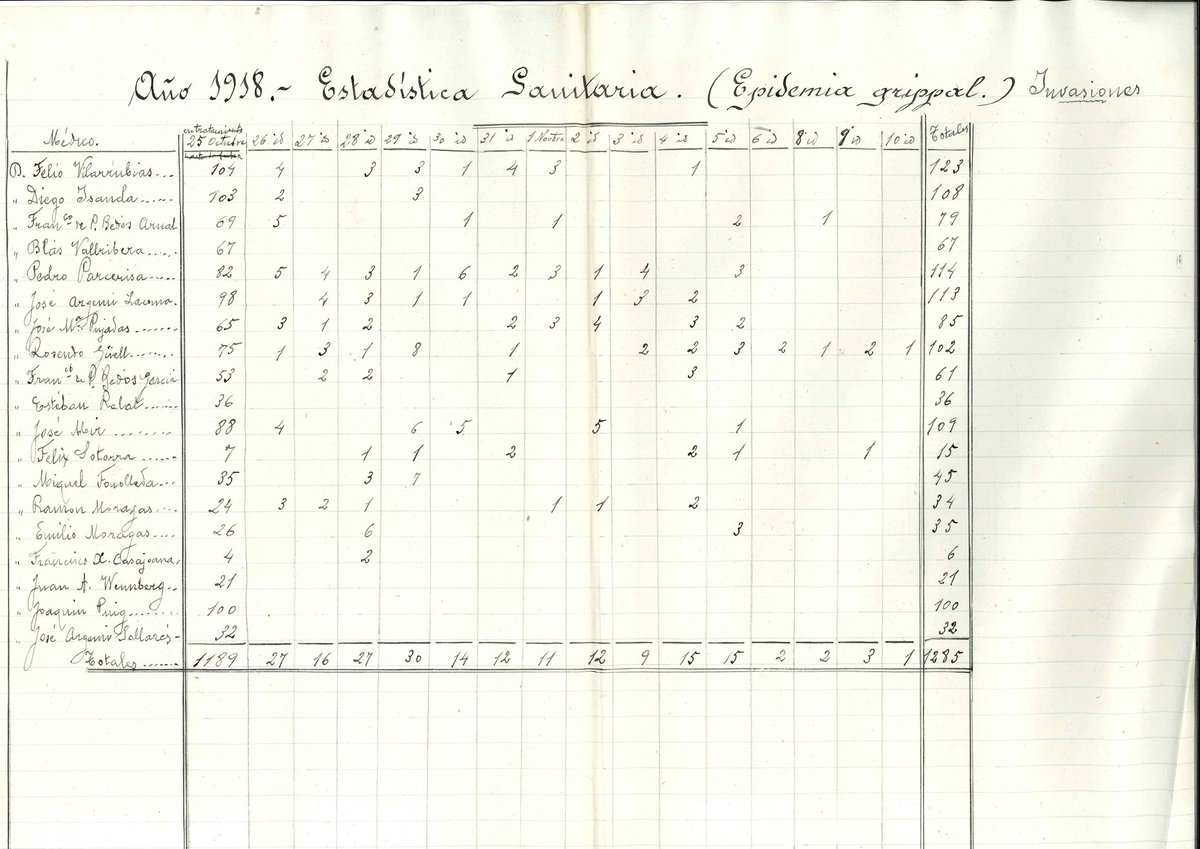 Año 1918.- Estadística Sanitaria. (Epidemia grippal.) Invasiones
Médico. en tratamiento 25 Octubre 26 id 27 id 28 id 29 id 30 id 31 id 1 Novbre 2 id 3 id 4 id 5 id 6 id 8 id 9 id 10 id Totales
D. Félio Vilarrúbias... 104 4 3 3 1 4 3 1 123
" Diego Isanda...... 103 2 3 108
" Fran.co de P. Bedós Arnal 69 5 1 1 2 1 79
" Blás Vallribera.... 67 67
" Pedro Parcerisa..... 82 5 4 3 1 6 2 3 1 4 3 114
" José Argemí Lacoma. 98 4 3 1 1 1 3 2 113
" José Mª Pujadas....... 65 3 1 2 2 3 4 3 2 85
" Rosendo Güell....... 75 1 3 1 8 1 2 2 3 2 1 2 1 102
" Fran.co de P. Bedós García 53 2 2 1 3 61
" Estéban Relat...... 36 36
" José Mir ......... 88 4 6 5 5 1 109
" Félix Sotorra ...... 7 1 1 2 2 1 1 15
" Miquel Fonolleda... 35 3 7 45
" Ramón Moragas.... 24 3 2 1 1 1 2 34
" Emilio Moragas... 26 6 3 35
" Francisco X. Casajoana, 4 2 6
" Juan A. Wennberg.. 21 21
" Joaquin Puig........ 100 100
" José Argemí Sellarés- 32 32
Totales....... 1189 27 16 27 30 14 12 11 12 9 15 15 2 2 3 1 1285